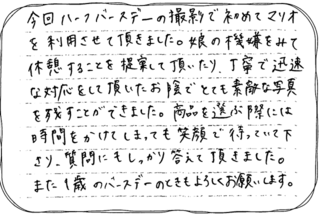 今回ハーフバースデーの撮影で初めてマリオ
を利用させて頂きました。娘の機嫌をみて
休憩することを提案して頂いたり、丁寧で迅速
な対応をして頂いたお陰でとても素敵な写真
を残すことができました。商品を選ぶ際には
時間をかけてしまっても笑顔で待っていて下
さり、質問にもしっかり答えて頂きました。
また1歳のバースデーのときもよろしくお願いします。